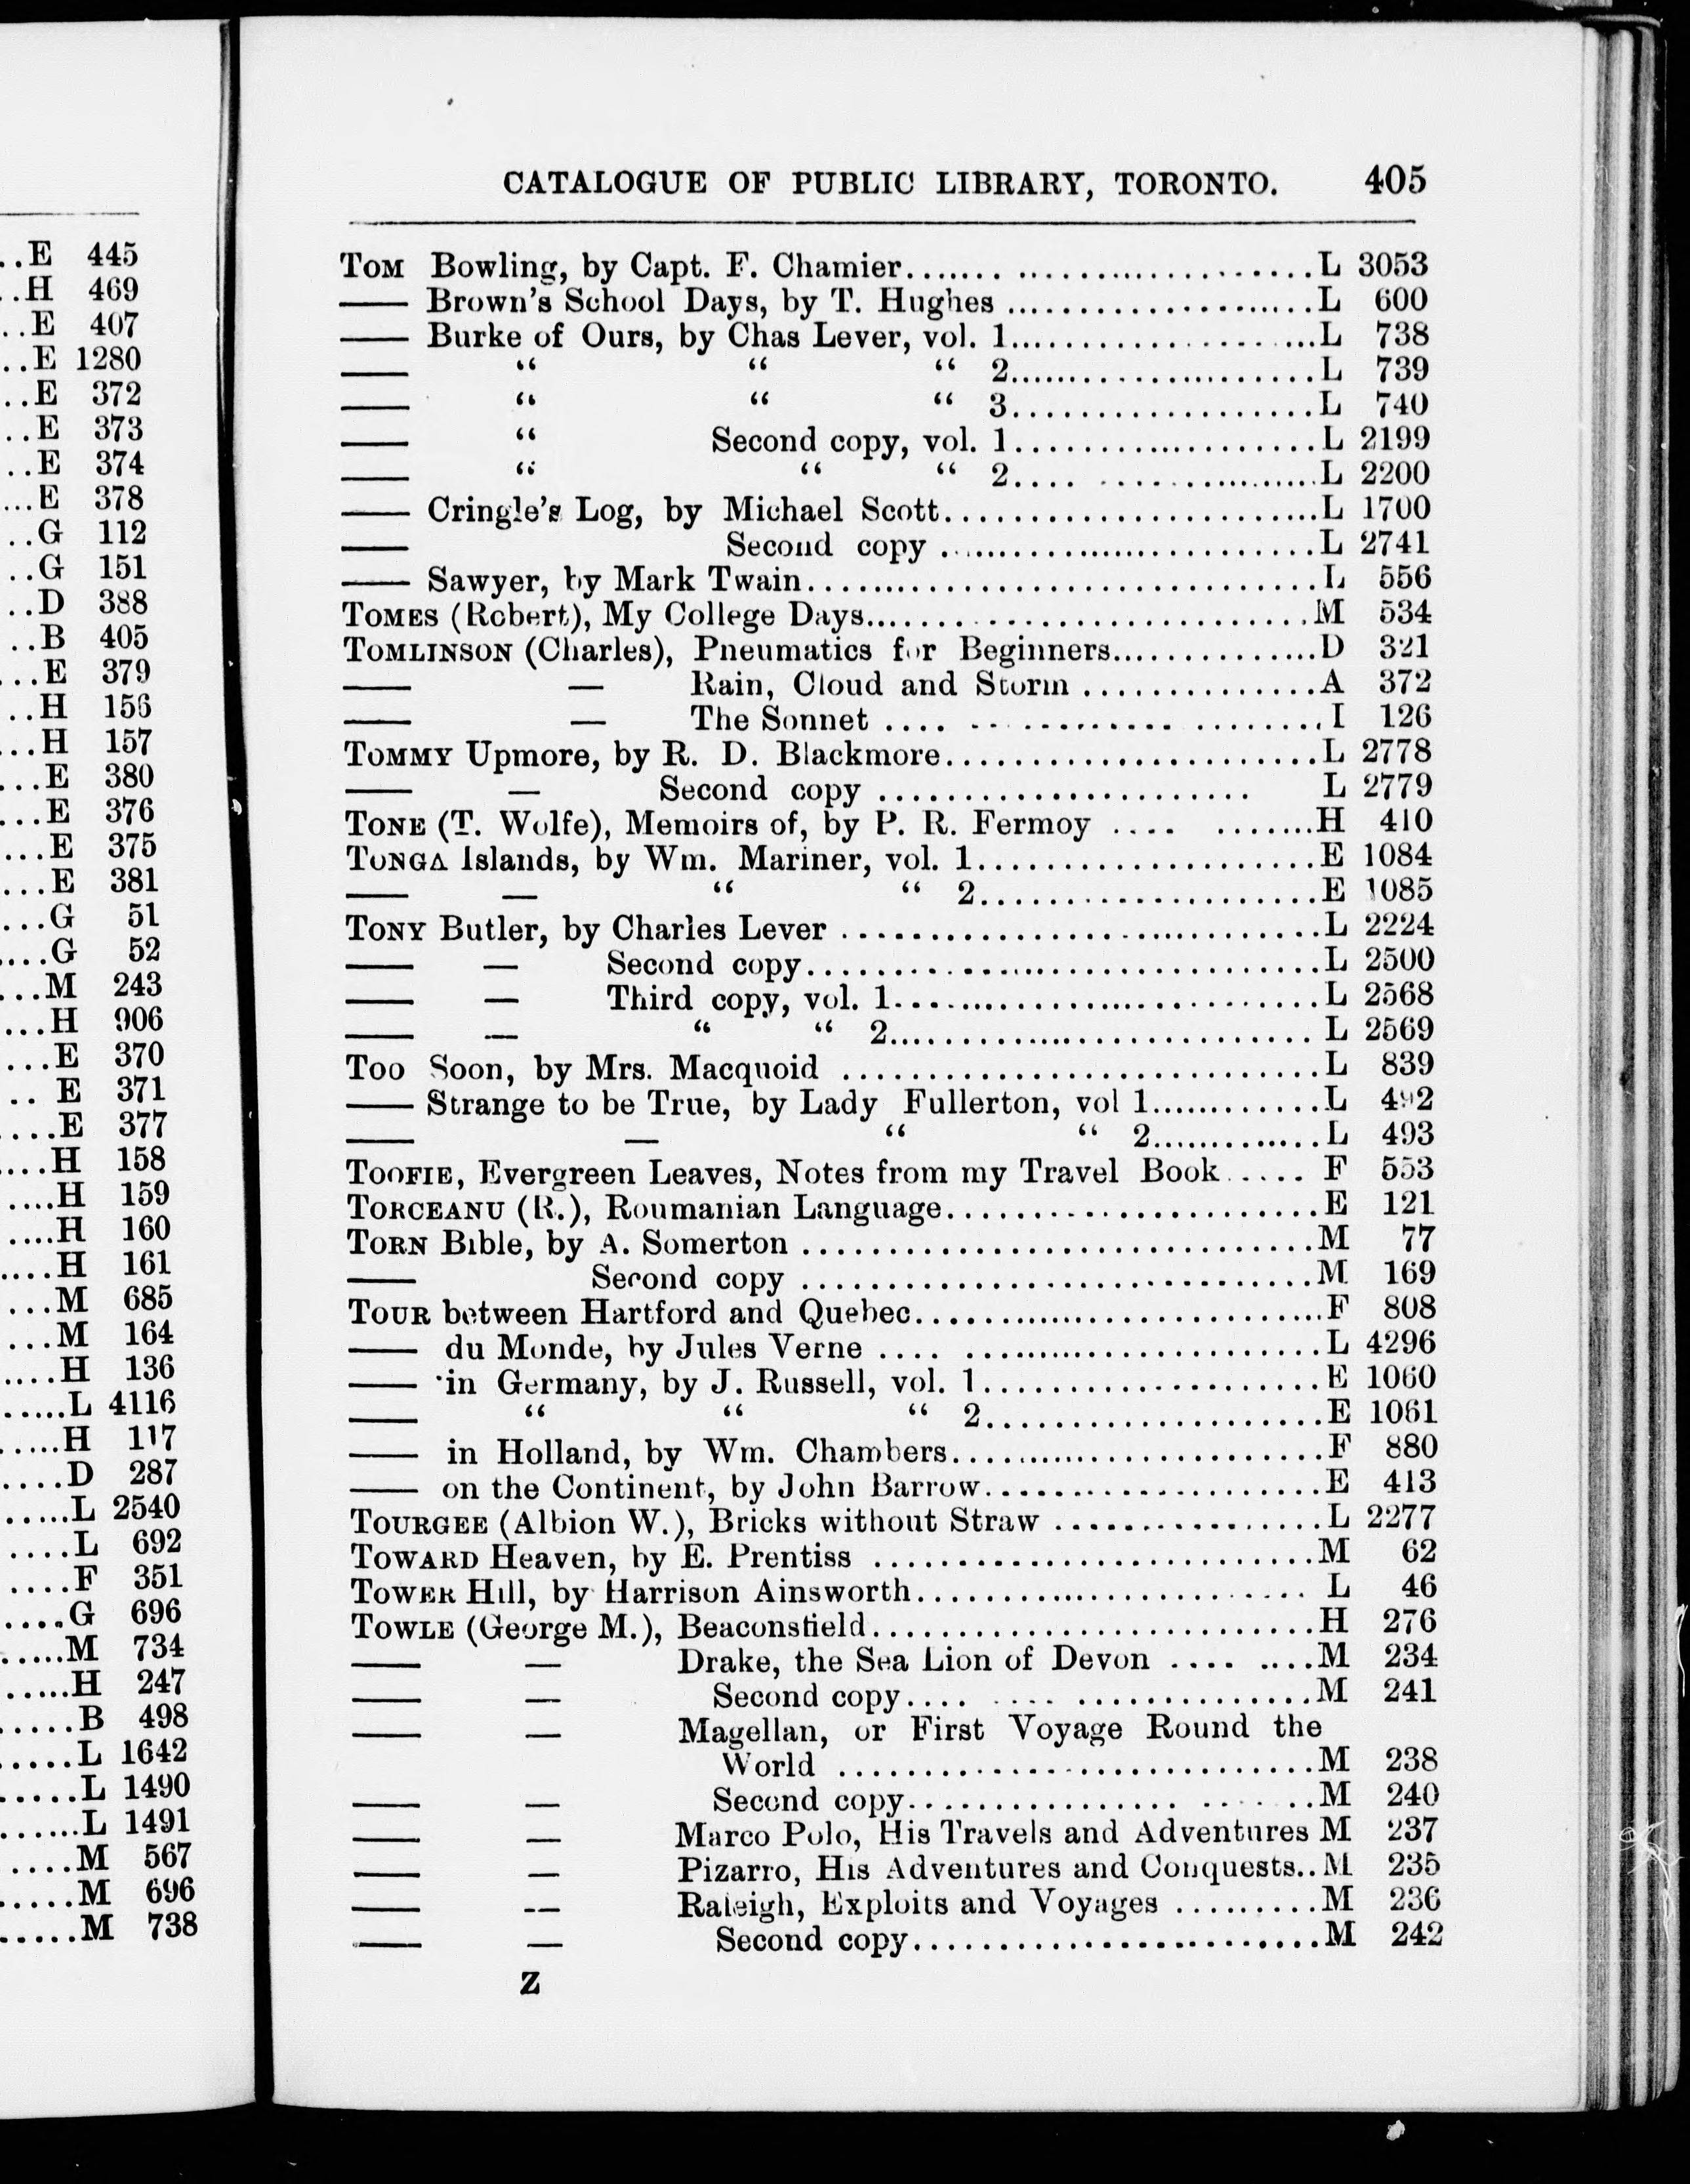 ..E 445
..H 469
..E 407
..E 1280
..E 372
..E 373
..E 374
...E 378
..G 112
..G 151
..D 388
..B 405
...E 379
..H 156
...H 157
...E 380
...E 376
...E 375
...E 381
...G 51
....G 52
...M 243
...H 906
...E 370
.. E 371
....E 377
....H 158
....H 159
....H 160
....H 161
...M 685
...M 164
....H 136
.....L 4116
.....H 117
....D 287
.....L 2540
....L 692
....F 351
....G 696
.....M 734
.....H 247
.....B 498
.....L 1642
.....L 1490
......L 1491
....M 567
.....M 696
.....M 738
CATALOGUE OF PUBLIC LIBRARY, TORONTO. 405
TOM Bowling, by Capt. F. Chamier....... ......................L 3053
—— Brown's School Days, by T. Hughes ......................L 600
—— Burke of Ours, by Chas Lever, vol. 1......................L 738
—— “ “ “ 2......................L 739
—— “ “ “ 3......................L 740
—— “ Second copy, vol. 1......................L 2199
—— “ “ “ 2.... ................L 2200
—— Cringle's Log, by Michael Scott..........................L 1700
—— Second copy ..........................L 2741
—— Sawyer, by Mark Twain....................................L 556
TOMES (Robert), My College Days...............................M 534
TOMLINSON (Charles), Pneumatics for Beginners...............D 321
—— — Rain, Cloud and Storm ................A 372
—— — The Sonnet .... .............. .........I 126
TOMMY Upmore, by R. D. Blackmore..........................L 2778
—— — Second copy ........................ L 2779
TONE (T. Wolfe), Memoirs of, by P. R. Fermoy .... ........H 410
TONGA Islands, by Wm. Mariner, vol. 1........................E 1084
—— — “ “ 2........................E 1085
TONY Butler, by Charles Lever ..................................L 2224
—— — Second copy....................................L 2500
—— — Third copy, vol. 1..............................L 2568
—— — “ “ 2.............................. L 2569
Too Soon, by Mrs. Macquoid ..................................L 839
—— Strange to be True, by Lady Fullerton, vol 1............L 492
—— — “ “ 2............L 493
TOOFIE, Evergreen Leaves, Notes from my Travel Book..... F 553
TORCEANU (R.), Roumanian Language..........................E 121
TORN Bible, by A. Somerton ....................................M 77
—— Second copy ....................................M 169
TOUR between Hartford and Quebec.............................F 808
—— du Monde, by Jules Verne .... .........................L 4296
—— in Germany, by J. Russell, vol. 1........................E 1060
—— “ “ “ 2........................E 1061
—— in Holland, by Wm. Chambers..........................F 880
—— on the Continent, by John Barrow........................E 413
TOURGEE (Albion W.), Bricks without Straw ...................L 2277
TOWARD Heaven, by E. Prentiss ...............................M 62
TOWER Hill, by Harrison Ainsworth............................ L 46
TOWLE (George M.), Beaconsfield...............................H 276
—— — Drake, the Sea Lion of Devon .... ....M 234
—— — Second copy.... .... ................M 241
—— — Magellan, or First Voyage Round the
World ..................................M 238
—— — Second copy................... .......M 240
—— — Marco Polo, His Travels and Adventures M 237
—— — Pizarro, His Adventures and Conquests..M 235
—— — Raleigh, Exploits and Voyages ..........M 236
—— — Second copy.............................M 242
Z